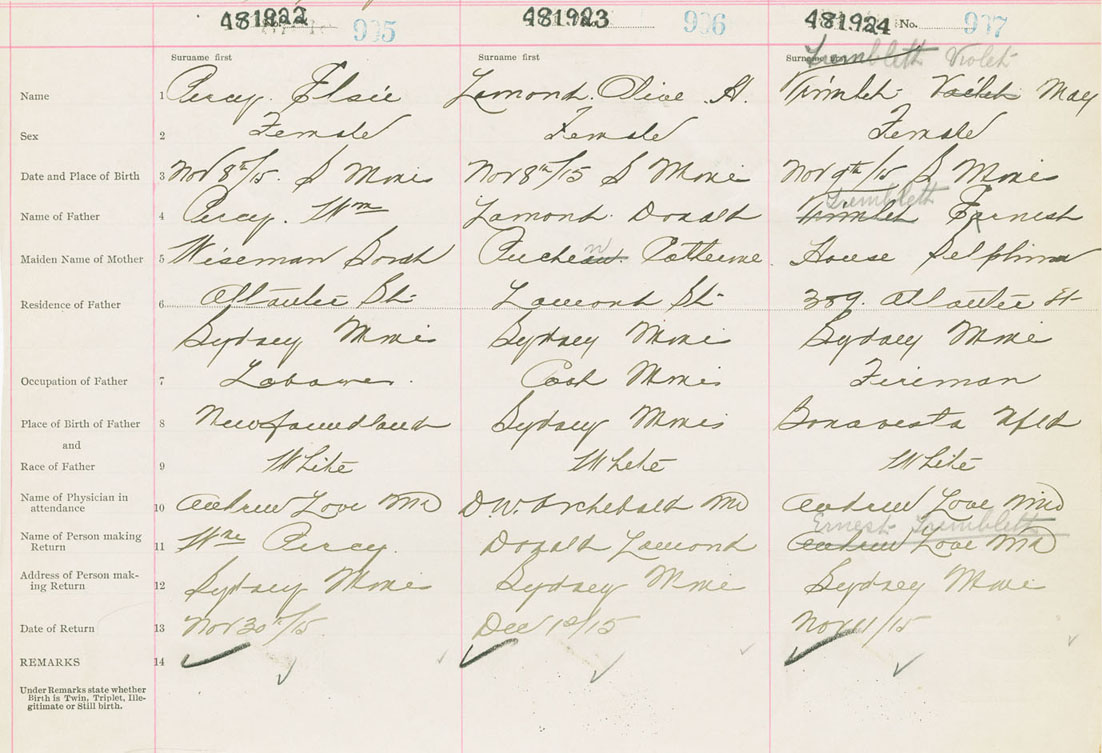 481922 No. 995 481923 No. 996 481924 No. 997
Surname first Surname first Surname first Trimbleth Violet
Name 1 Percy. Elsie Lamond. Olive A. Trimlet Voilet May
Sex 2 Female Female Female
Date and Place of Birth 3 Nov 8th/15. S Mines Nov 8th/15 S Mines Nov 9th/15 S Mines
Trimbleth
Name of Father 4 Percy. Wm Lamond. Donald Trimlet Ernest
Maiden Name of Mother 5 Wiseman Sarah Catherine House Delphina
Residence of Father 6 Atlantic St. Lamond St. 389. Atlantic St
Sydney Mines Sydney Mines Sydney Mines
Occupation of Father 7 Labourer. Coal Mines Fireman
Place of Birth of Father 8 Newfoundland Sydney Mines Bonavesta Nfld
and
Race of Father 9 White White White
Name of Physician in 10 Andrew Love MD D.W. Archibald MD Andrew Love MD
attendance
Ernest Trimbleth
Name of Person making 11 Wm Percy. Donald Lamond Andrew Love MD
Return
Address of Person mak- 12 Sydney Mines Sydney Mines Sydney Mines
ing Return
Date of Return 13 Nov 30th/15 Dec 1st/15 Nov 11/15
REMARKS 14
Under Remarks state whether
Birth is Twin, Triplet, Ille-
gitimate or Still birth.